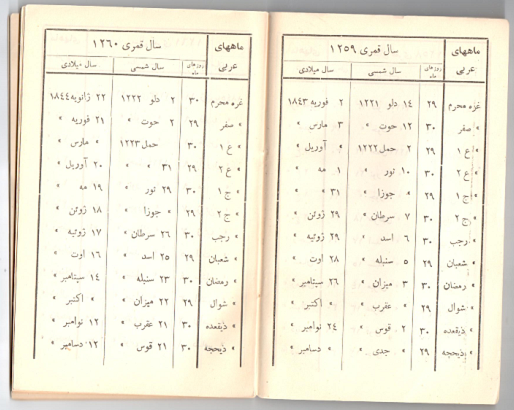 ماههای عربی روزهای ماه سال قمری ۱۲۵۹ سال شمسی سال میلادی
غره محرم ۲۹ ۱۴ دلو ۱۲۲۱ ۲ فوریه ۱۸۴۳
» صفر ۳۰ ۱۲ حوت » ۳ مارس »
» ع ۱ ۲۹ ۲ حمل ۱۲۲۲ » آوریل »
» ع ۲ ۳۰ ۱۰ ثور » ۱ مه »
» ج ۱ ۲۹ » جوزا » ۳۱ » »
» ج ۲ ۳۰ ۷ سرطان » ۲۹ ژوئن »
» رجب ۳۰ ۶ اسد » ۲۹ ژوئیه »
» شعبان ۲۹ ۵ سنبله » ۲۸ اوت »
» رمضان ۳۰ ۳ میزان » ۲۶ سپتامبر »
» شوال ۲۹ » عقرب » » اکتبر »
» ذیقعده ۳۰ ۲ قوس » ۲۴ نوامبر »
» ذیحجه ۲۹ » جدی » » دسامبر »
ماههای عربی روزهای ماه سال قمری ۱۲۶۰ سال شمسی سال میلادی
غره محرم ۳۰ ۲ دلو ۱۲۲۲ ۲۲ ژانویه ۱۸۴۴
» صفر ۲۹ ۲ حوت » ۲۱ فوریه »
» ع ۱ ۳۰ حمل ۱۲۲۳ » مارس »
» ع ۲ ۲۹ ۳۱ » » ۲۰ آوریل »
» ج ۱ ۳۰ ۲۹ ثور » ۱۹ مه »
» ج ۲ ۲۹ » جوزا » ۱۸ ژوئن »
» رجب ۳۰ ۲۶ سرطان » ۱۷ ژوئیه »
» شعبان ۲۹ ۲۵ اسد » ۱۶ اوت »
» رمضان ۳۰ ۲۳ سنبله » ۱۴ سپتامبر »
» شوال ۲۹ ۲۲ میزان » » اکتبر »
» ذیقعده ۳۰ ۲۱ عقرب » ۱۲ نوامبر »
» ذیحجه ۳۰ ۲۱ قوس » ۱۲ دسامبر »